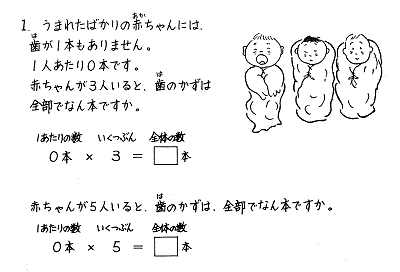 1. うまれたばかりの赤ちゃんには、
歯が1本もありません。
1人あたり0本です。
赤ちゃんが3人いると、歯のかずは
全部でなん本ですか。
1あたりの数 いくつぶん 全体の数
0本 × 3 = □本
赤ちゃんが5人いると、歯のかずは、全部でなん本ですか。
1あたりの数 いくつぶん 全体の数
0本 × 5 = □本